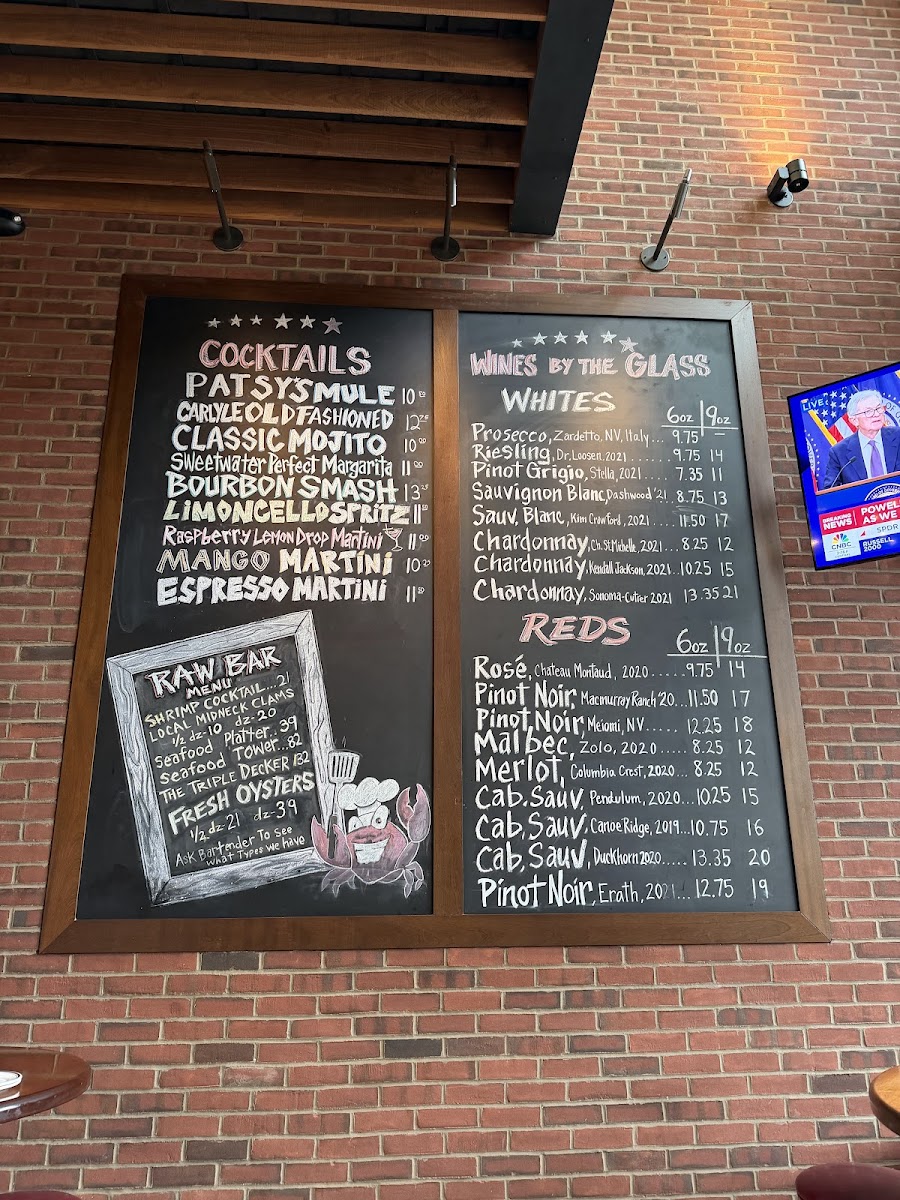 COCKTAILS
PATSY'S MULE 10
CARLYLE OLD FASHIONED 12
CLASSIC MOJITO 10
Sweetwater Perfect Margarita 11
BOURBON SMASH 13
LIMONCELLO SPRITZ 11
Raspberry Lemon Drop Martini 11
MANGO MARTINI 10
ESPRESSO MARTINI 11
RAW BAR
MENU
SHRIMP COCKTAIL...21
LOCAL MIDNECK CLAMS
1/2 dz-10 dz-20
Seafood Platter..39
Seafood Tower...82
THE TRIPLE DECKER 132
FRESH OYSTERS
1/2 dz 21 dz-39
Ask Bartender To see
what Types we have
WINES BY THE GLASS
WHITES
6oz | 9oz
Prosecco, Zardetto, NV, Italy... 9.75
Riesling, Dr. Loosen, 2021 ...... 9.75 14
Pinot Grigio, Stella, 2021 ..... 7.35 11
Sauvignon Blanc, Dashwood '21. 8.75 13
Sauv. Blanc, Kim Crawford, 2021 .... 11.50 17
Chardonnay, Ch. St Michelle, 2021... 8.25 12
Chardonnay, Kendall Jackson, 2021..10.25 15
Chardonnay, Sonoma-Cutrer 2021 13.35 21
REDS
6oz | 9oz
Rosé, Chateau Montaud, 2020.....9.75 14
Pinot Noir, Macmurray Ranch '20...11.50 17
Pinot Noir, Meiomi, NV..... 12.25 18
Malbec, Zolo, 2020 ..... 8.25 12
Merlot, Columbia Crest, 2020... 8.25 12
Cab. Sauv, Pendulum, 2020...10.25 15
Cab, Sauv, Canoe Ridge, 2019...10.75 16
Cab, Sauv, Duckhorn 2020..... 13.35 20
Pinot Noir, Erath, 2021... 12.75 19
LIVE
BREAKING NEWS
POWELL
AS WE
CNBC
SPDR
RUSSELL
2000